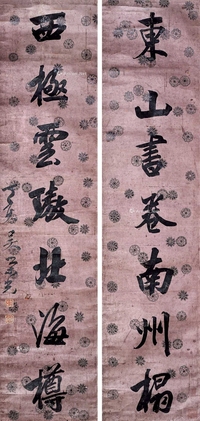 東山書卷南州榻
西極雲璈北海樽